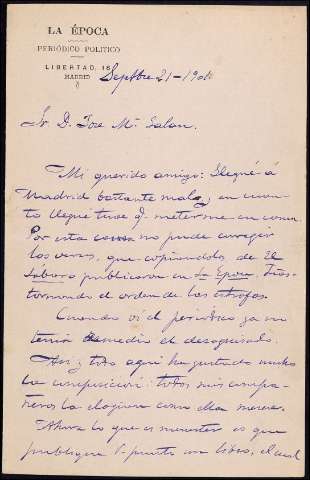 LA ÉPOCA
PERIÓDICO POLÍTICO
LIBERTAD, 16
MADRID
Septbre 21-1900
Sr. D. Jose Mª Galan.
Mi querido amigo: Llegué á
Madrid bastante malo, en cuan-
to llegué tuve q. meterme en cama.
Por esta causa no pude corregir
los versos, que copiandolos de El
Lábaro publicaron en La Epoca, tras-
tornando el orden de las estrofas.
Cuando ví el periodico ya no
tenia remedio el desaguisado.
Asi y todo aqui ha gustado mucho
la composición: todos mis compa-
ñeros la elogian como ella merece.
Ahora lo que es menester es que
publique V. pronto un libro, el cual